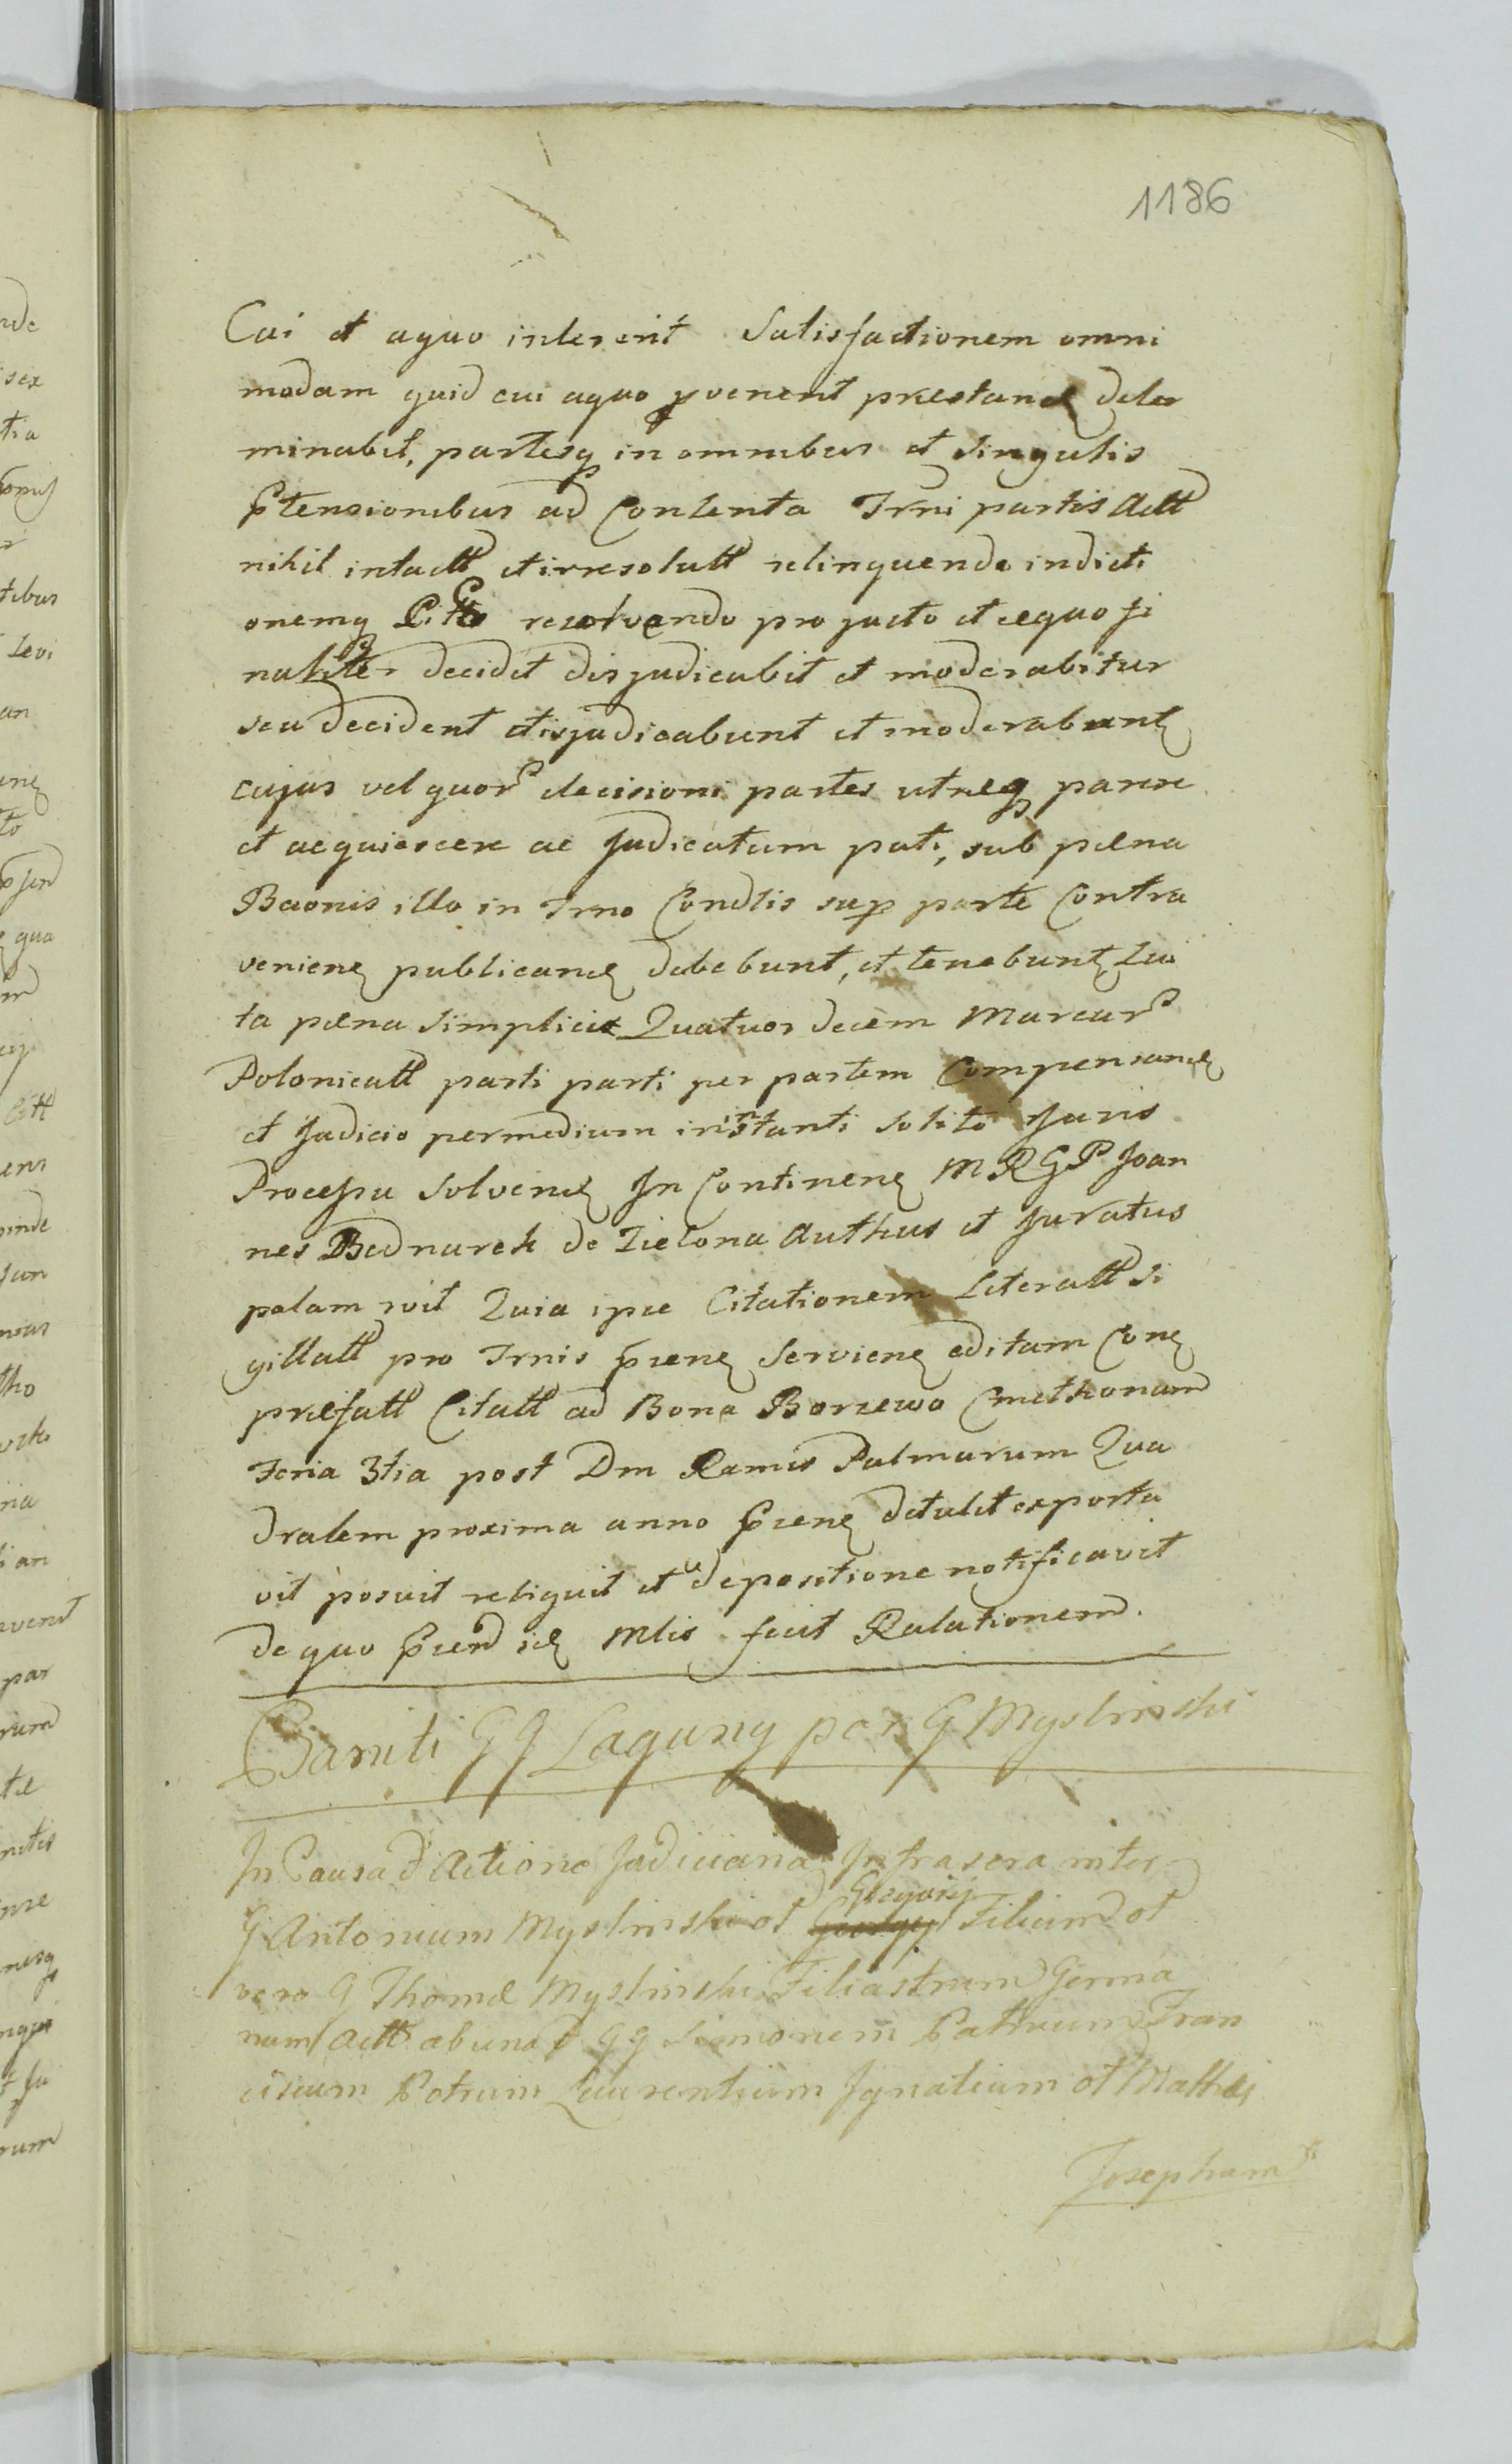 1186
Cui et aquo intererit Satisfactionem omni
modam quid cui aquo pvenerit præstand deter
minabit, partesq in omnibus et singulis
Ptensionibus ad Contenta Trni partis Actt
nihil intactt et irresolutt relinquendo indicti
onemq resolvendo pro justo et æquo fi
naliter decidet disjudicabit et moderabitur
seu decident disjudicabunt et moderabunt
cujus vel quor decisioni partes utræq parere
et acquiescere ac Judicatum pati, sub pæna
Baonis illo in Trno Condtis sup parte Contra
venien publicand debebunt, et tenebunt Lui
ta pæna Simplici Quatuor decem Marcar
Polonicatt parti parti per partem Compensand
et Judicio permedium instanti solito Juris
Processu Solvend In Continen M R G P Joan
nes Bednarek de Zielona Authus et Juratus
palam rvit Quia ipse Citationem Literatt Si
gillatt pro Trnis psen Servien editam Con
præfatt Citatt ad Bona Borzewo Cmethonam
Feria 3tia post Dm Ramis Palmarum Qua
dralem proxima anno Psen detulit exporta
vit posuit reliquit et depositione notificavit
de quo Psend id Mlis fecit Relationem.
Baniti GG Laguny per G Myslinski
In Causa d Actione Judiciaria Infrascra inter
G Antonium Myslinski ol Gregorij Filium ol
vero G Thomæ Myslinski Filiastrum Germa
num Actt ab una d GG Simonem Patruum Fran
ciscum Petrum Laurentium Ignatium ol Matthæi
Josephum